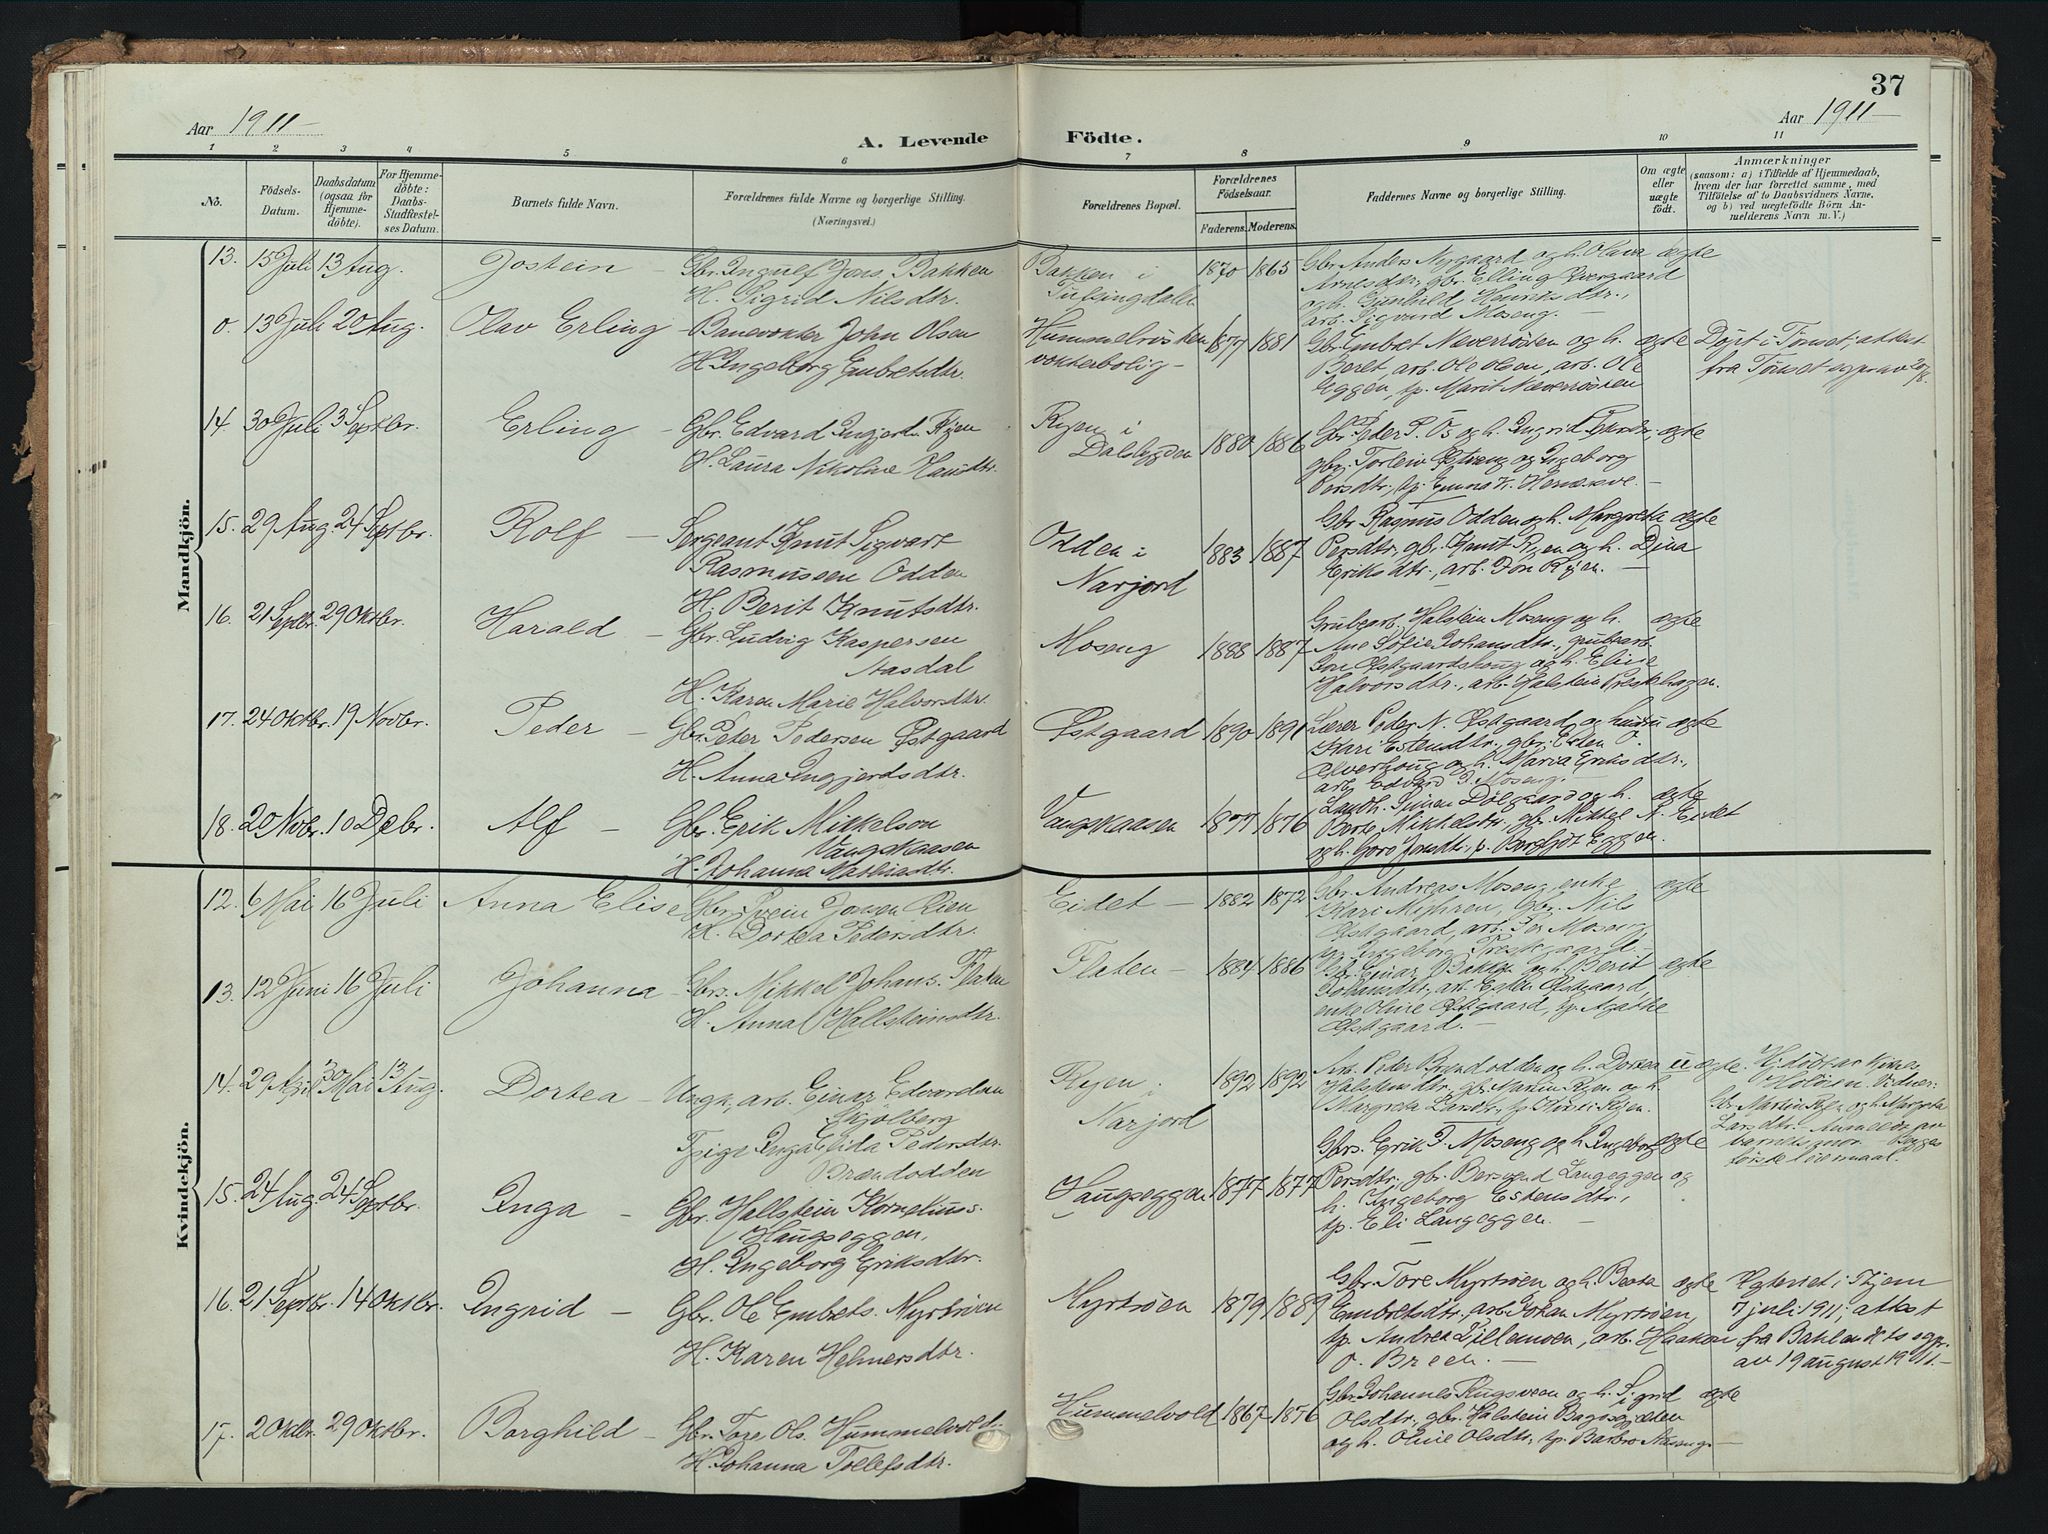 37
Aar 1911- A. Levende Födte. Aar 1911-
1 2 3 4 5 6 7 8 9 10 11
No.
Födsels-Datum.
Daabsdatum (ogsaa for Hjemmedöbte).
For Hjemmedöbte: Daabs-Stadfæstelses Datum.
Barnets fulde Navn.
Forældrenes fulde Navne og borgerlige Stilling.
(Næringsvei.)
Forældrenes Bopæl.
Forældrenes Födselsaar.
Faderens. Moderens.
Faddernes Navne og borgerlige Stilling.
Om ægte eller uægte födt.
Anmærkninger
(saasom: a) i Tilfælde af Hjemmedaab,
hvem der har forrettet samme, med
Tilföielse af to Daabsvidners Navne,
og b) ved uægtefödte Börn An-
melderens Navn m. V.)
Mandkjön.
13. 15 Juli 13 Aug. Jostein - Gbr. Ingulf Jons. Bakken
H. Sigrid Nilsdtr.
Bakken i Tufsingdalen 1870 1865
Gbr. Anders Nygaard og h. Olava ægte
Arnesdtr., gbr. Elling Øvergaard
og h. Gunhild Henriksdtr.,
arb. Sigvard Moseng. -
0. 13 Juli 20 Aug. Olav Erling - Banevokter John Olsen
H. Ingeborg Embretsdtr.
vokterbolig - 1877 1881
Gbr. Embret Neverrösten og h. ægte
Beret, arb. Ole Olsen, arb. Ole
Eggen, tp. Marit Neverrösten
Døpt i Tönset; attest
fra Tönset
14 30 Juli 3 Septbr. Erling - Gbr. Edvard Ingjerds. Ryen
H. Laura Nikoline Hansdtr.
Ryen i Dalsbygden 1880 1886
Gbr. Peder P. Os og h. Ingrid ægte
gbr. Torleiv og Ingeborg
Persdtr., tp. Emma
15. 29 Aug. 24 Septbr. Rolf - Sergeant Knut Sigvart
Rasmussen Odden
H. Berit Knutsdtr.
Odden i Narjord 1883 1887
Gbr. Rasmus Odden og h. Margreta ægte
Persdtr., gbr. Knut Ryen og h. Dina
Eriksdtr., arb. Jon Ryen. -
16. 21 Septbr. 29 Oktbr. Harald - Gbr. Ludvig Kaspersen
Aasdal
H. Karen Marie Halvorsdtr.
Moseng 1888 1887
Grubearb. Halstein Moseng og h. ægte
Ane Sofie Johansdtr., grubearb.
Jon Østgaardshaug og h. Elise
Halvorsdtr., arb. Halstein Prestehagen.
17. 24 Oktbr. 19 Novbr. Peder - Gbr. Peter Pedersen Østgaard
H. Anna Ingjerdsdtr.
Østgaard 1890 1891
Lærer Peder N. Østgaard og hustru ægte
Kari Estensdtr., gbr. Esten O.
og h. Maria Eriksdtr.,
arb. Edvard P. Moseng. -
18. 20 Nvbr. 10 Debr. Alf - Gbr. Erik Mikkelson
Vangskaasen
H. Johanna Mathiasdtr.
Vangskaasen 1877 1876
Landh. Simen Dölgaard og h. ægte
Berte Mikkelsdtr., gbr. Mikkel A. Eidet
og h. Goro Jonsdtr., p. Bergljot Eggen.
Kvindekjön.
12. 6 Mai 16 Juli Anna Elise Gbr. Svein Jonsen Oien
H. Dortea Pedersdtr.
Eidet - 1882 1872
Gbr. Andreas Moseng, enke ægte
Kari Myhren, gbr. Nils
Østgaard, arb. Per Moseng,
p. Ingeborg Prestgaard. -
13. 12 Juni 16 Juli Johanna - Gbr. Mikkel Johans. Flaten
H. Anna Hallsteinsdtr.
Flaten - 1884 1886
Gbr. Einar Bakken og h. Berit ægte
Johansdtr., arb. Esten Østgaard,
enke Oline Østgaard, tp. Agathe
Østgaard. -
14. 29 April 30 Mai 13 Aug. Dortea - Ungk., arb. Einar Edvardsen
Skjölberg
Pige Inga Elida Pedersdtr.
Brændodden
Ryen i Narjord 1892 1892
Arb. Peder Brændodden og h. Dortea uægte
Halstensdtr., gbr. Martin Ryen og h.
Margreta Larsdtr., tp. Ryen.
Hj.döbt av
Vidner:
Gbr. Martin Ryen og h. Margreta
Larsdtr. Anmeldt av
barnets mor - Begges
förste leiermaal.
15. 24 Aug. 24 Septbr. Inga - Gbr. Hallstein Kornelius.
Haugseggen,
H. Ingeborg Eriksdtr.
Haugseggen 1877 1877
Gbr. Erik P. Moseng og h. Ingeborg ægte
Persdtr., gbr. Bersvend Langeggen og
h. Ingeborg Estensdtr.,
tp. Eli Langeggen. -
16. 21 Septbr. 14 Oktbr. Ingrid - Gbr. Ole Embrets. Myrtröen
H. Karen Helmersdtr.
Myrtröen 1879 1889
Gbr. Tore Myrtröen og h. Beata ægte
Embretsdtr., arb. Johan Myrtröen,
tp. Andrea Lillemoen, arb. Haakon
O. Breen. -
Egteviet i
7 juli 1911; attest
fra
av 19 august 1911. -
17. 2 Oktbr. 29 Oktbr. Borghild - Gbr. Tore Ols. Hummelvold
H. Johanna Tollefsdtr.
Hummelvold 1867 1876
Gbr. Johannes Rugsveen og h. Sigrid ægte
Olsdtr., gbr. Halstein
og h. Oline Olsdtr., tp. Barbro